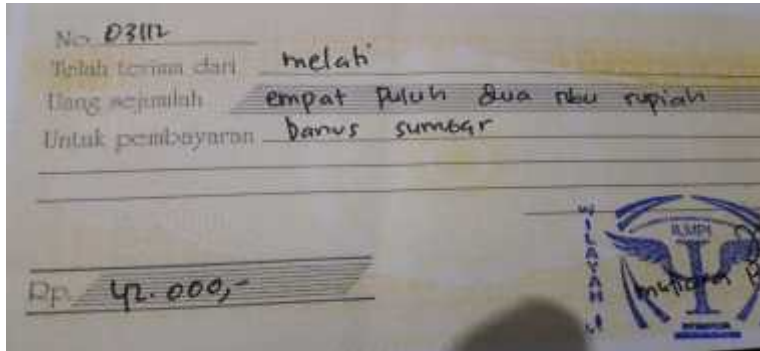 No. 03112
Telah terima dari melati
Uang sejumlah empat puluh dua ribu rupiah
Untuk pembayaran banus sumbar
Rp. 42.000,-
WILAYAH I
ILMPI
mutiara